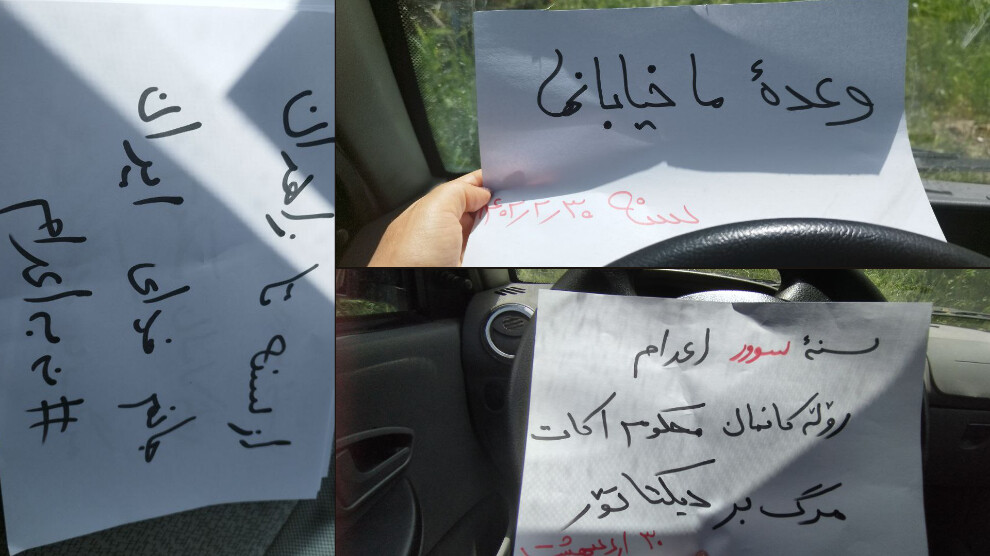 از سنه تا زاهدان
جانم فدای ایران
#نه به اعدام
وعدهٔ ما خیابانها
سنه ۱۴۰۲/۲/۳۰
سنهٔ سوور اعدام
رۆڵه کانمان محکوم اکات
مرگ بر دیکتاتۆر
۳۰ اردیبهشت